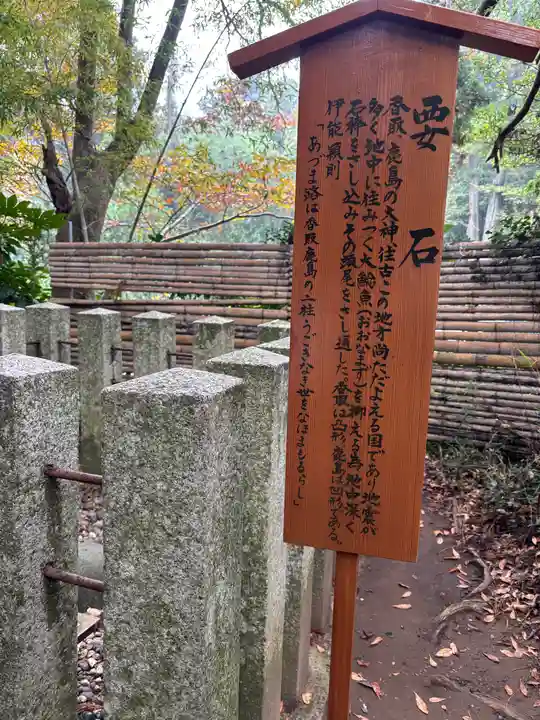 要石
香取、鹿島の大神、往古この地方尚ただよえる国であり地震が
多く地中に住みつく大鯰魚(おおなまず)を抑える為地中深く
石棒をさし込みその頭尾をさし通した、香取は凸形、鹿島は凹形である。
伊能頴則
「あづま路は香取鹿島の二柱うごきなき世をなほまもるらし」